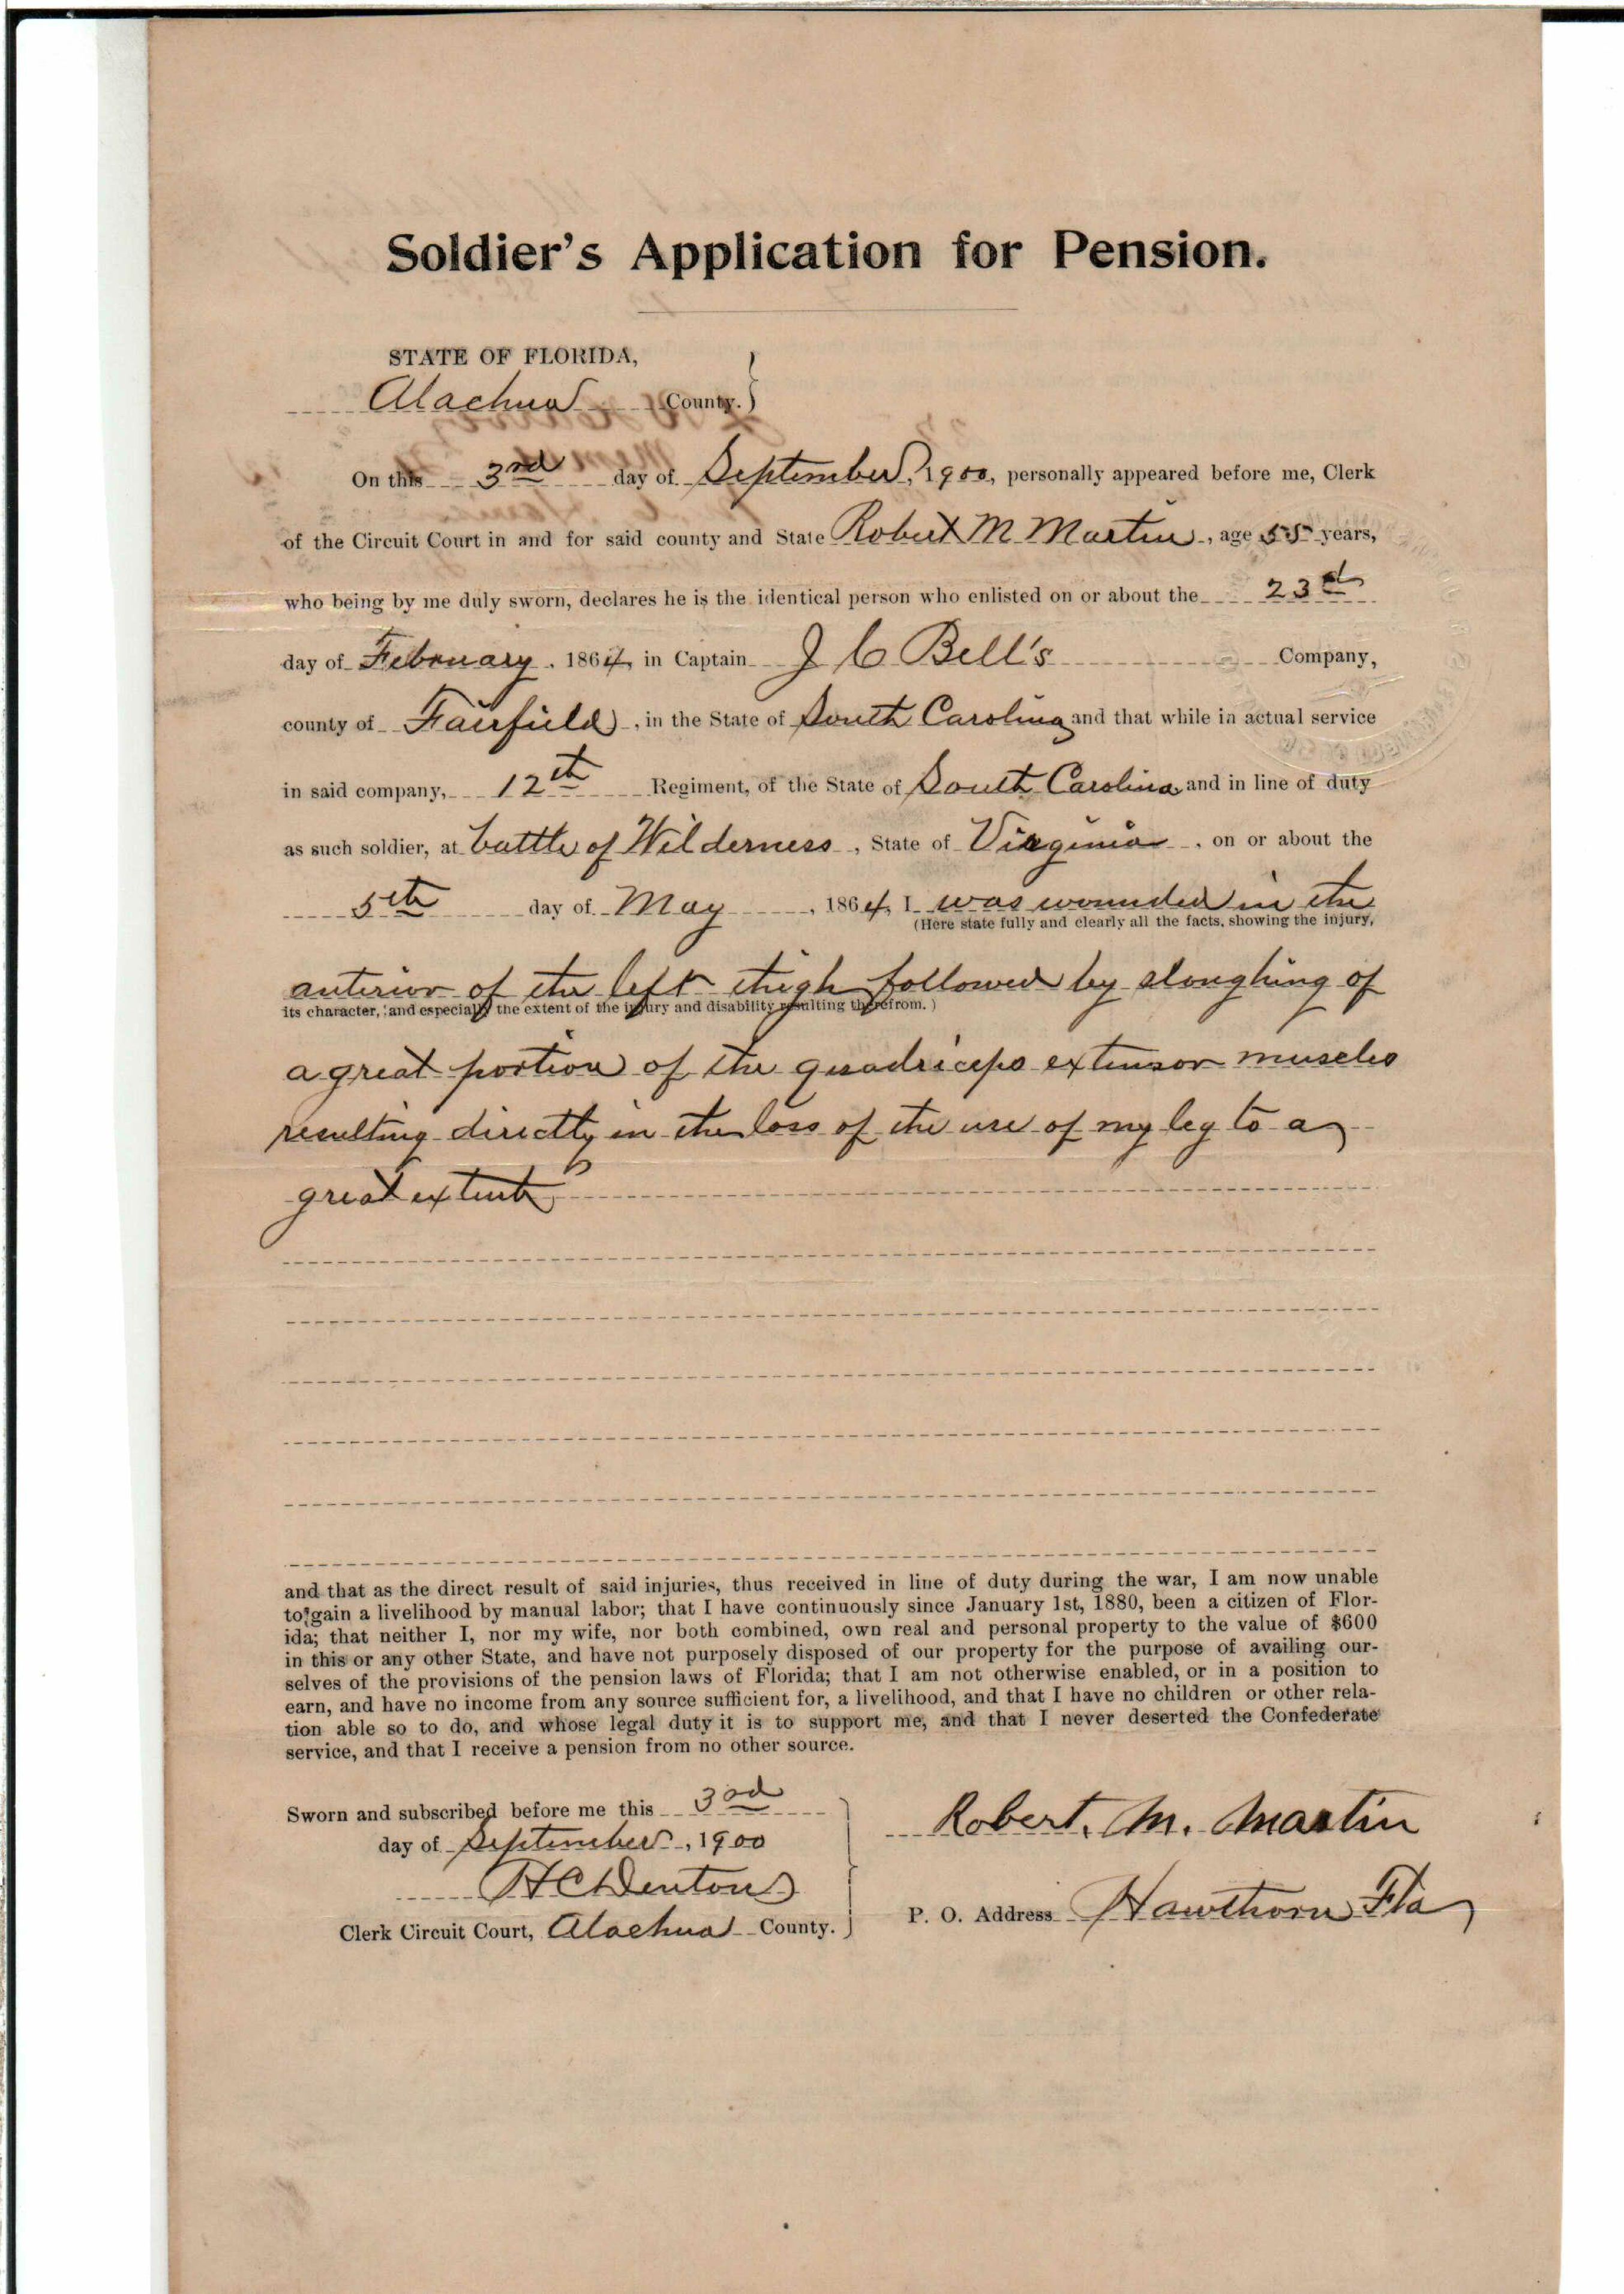 Soldier's Application for Pension.
STATE OF FLORIDA,
Alachua County.
On this 3rd day of September, 1900, personally appeared before me, Clerk
of the Circuit Court in and for said county and State Robert M Martin, age 55 years,
who being by me duly sworn, declares he is the identical person who enlisted on or about the 23d
day of February, 1864, in Captain J C Bell's Company,
county of Fairfield, in the State of South Carolina and that while in actual service
in said company, 12th Regiment, of the State of South Carolina and in line of duty
as such soldier, at battle of Wilderness, State of Virginia, on or about the
5th day of May, 1864, I was wounded in the
(Here state fully and clearly all the facts, showing the injury,
anterior of the left thigh followed by sloughing of
its character, and especially the extent of the injury and disability resulting therefrom.)
a great portion of the quadriceps extensor muscles
resulting directly in the loss of the use of my leg to a
great extent
and that as the direct result of said injuries, thus received in line of duty during the war, I am now unable
to gain a livelihood by manual labor; that I have continuously since January 1st, 1880, been a citizen of Flor-
ida; that neither I, nor my wife, nor both combined, own real and personal property to the value of $600
in this or any other State, and have not purposely disposed of our property for the purpose of availing our-
selves of the provisions of the pension laws of Florida; that I am not otherwise enabled, or in a position to
earn, and have no income from any source sufficient for, a livelihood, and that I have no children or other rela-
tion able so to do, and whose legal duty it is to support me, and that I never deserted the Confederate
service, and that I receive a pension from no other source.
Sworn and subscribed before me this 3rd
day of September, 1900
H C Denton
Clerk Circuit Court, Alachua County.
Robert. M. Martin
P. O. Address Hawthorn Fla